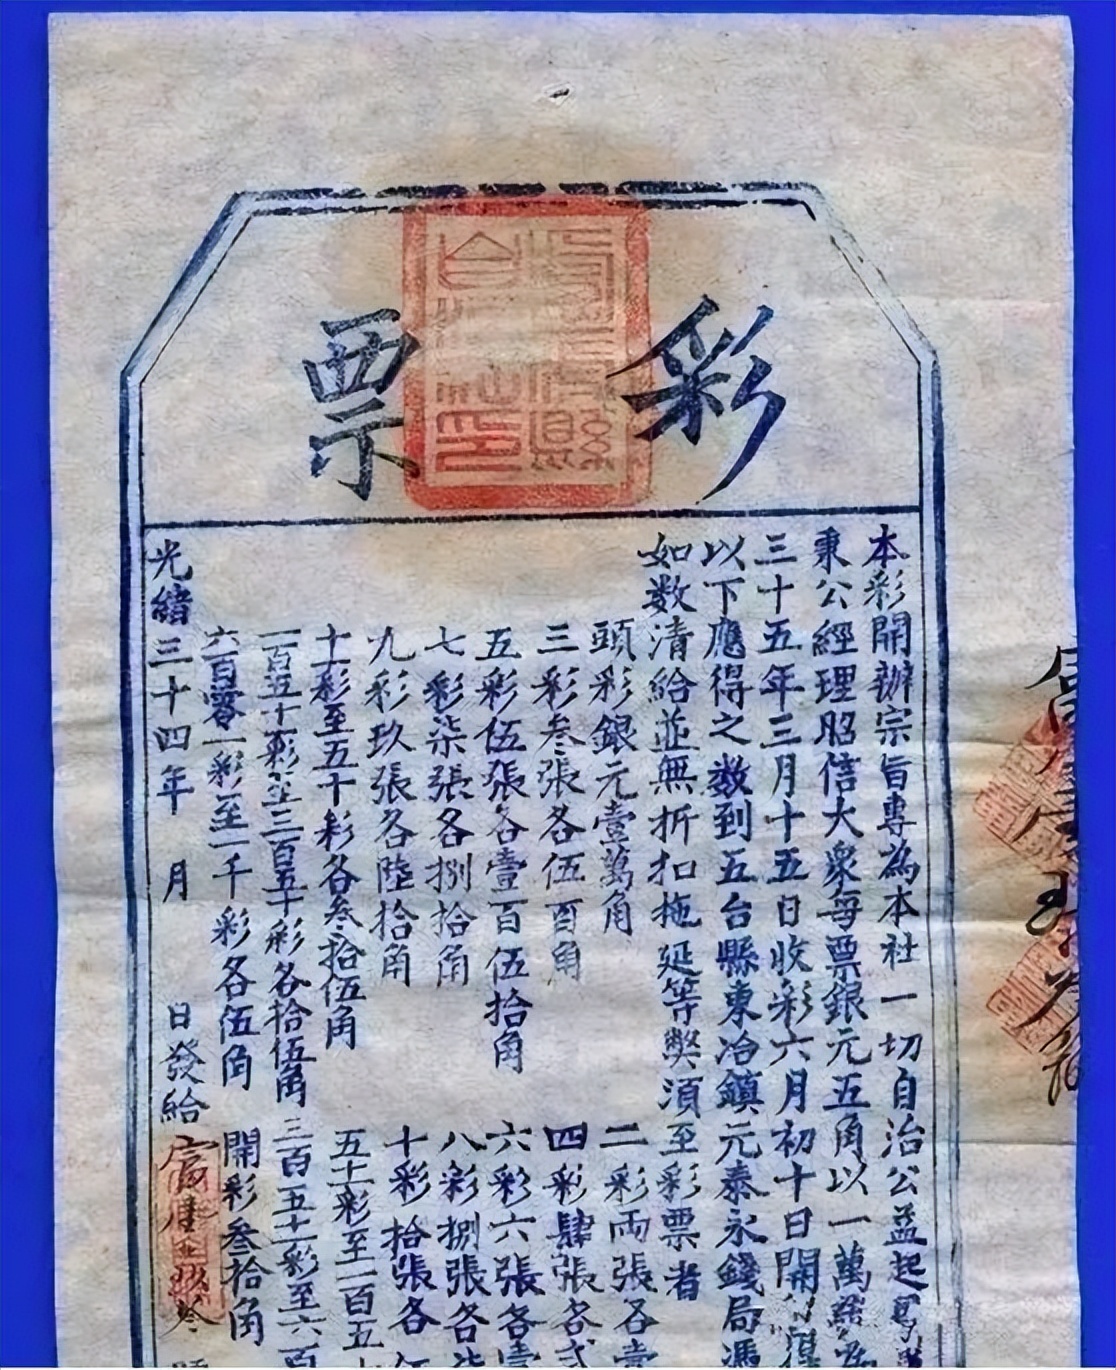 彩票
本彩開辦宗旨專為本社一切自治公益起見
秉公經理昭信大衆每票銀元五角以一萬
三十五年三月十五日收彩六月初十日開
以下應得之数到五台縣東冶鎮元泰永錢局憑
如数清給並無折扣拖延等獘須至彩票者
頭彩銀元壹萬角
二彩両張各壹
三彩叁張各伍百角
四彩肆張各弍
五彩伍張各壹百伍拾角
六彩六張各壹
七彩柒張各捌拾角
八彩捌張各柒
九彩玖張各陸拾角
十彩拾張各伍
十一彩至五十彩各叁拾伍角
五十一彩至一百五十
一百五十一彩至三百五十彩各拾伍角
三百五十一彩至六百
六百零一彩至一千彩各伍角
開彩叁拾角
光緒三十四年　月　日發給